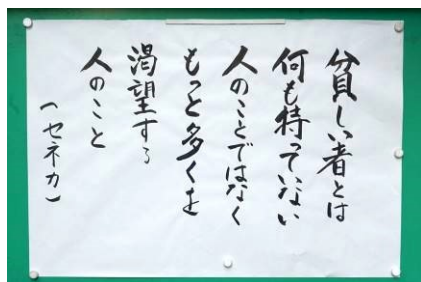 貧しい者とは
何も持っていない
人のことではなく
もっと多くを
渇望する
人のこと
(セネカ)